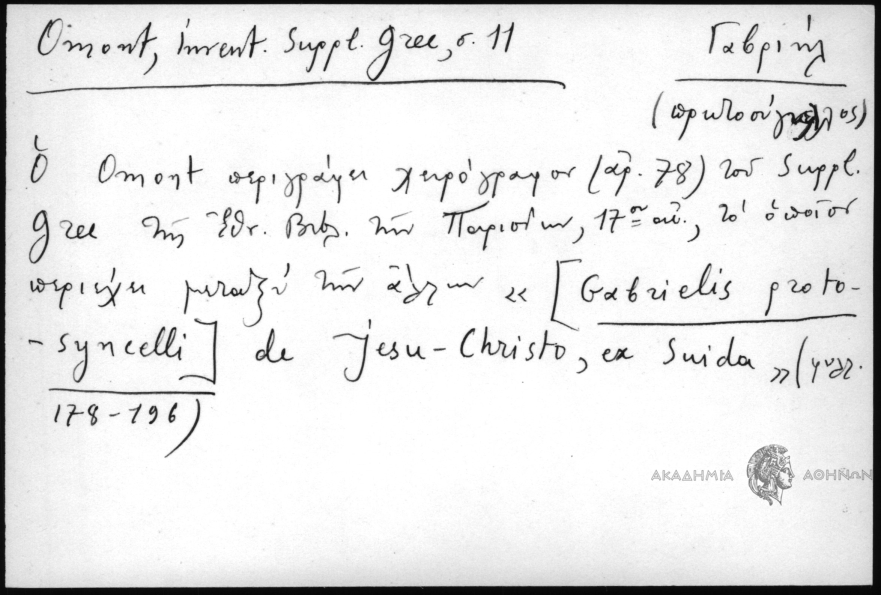 Omont, invent. Suppl. Grec, σ. 11
Γαβριήλ
(πρωτοσύγκελλος)
Ὁ Omont περιγράφει χειρόγραφον (ἀρ. 78) τοῦ Suppl.
Grec τῆς Ἐθν. Βιβλ. τῶν Παρισίων, 17ου αἰ., τὸ ὁποῖον
περιέχει μεταξὺ τῶν ἄλλων « [Gabrielis proto-
-syncelli] de Jesu-Christo, ex Suida » (φυλλ.
178-196)
ΑΚΑΔΗΜΙΑ ΑΘΗΝΩΝ